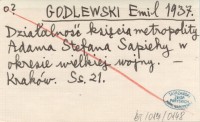 o.2 GODLEWSKI Emil 1937.
Działalność księcia metropolity
Adama Stefana Sapiehy w
okresie wielkiej wojny. –
Kraków. Ss. 21.